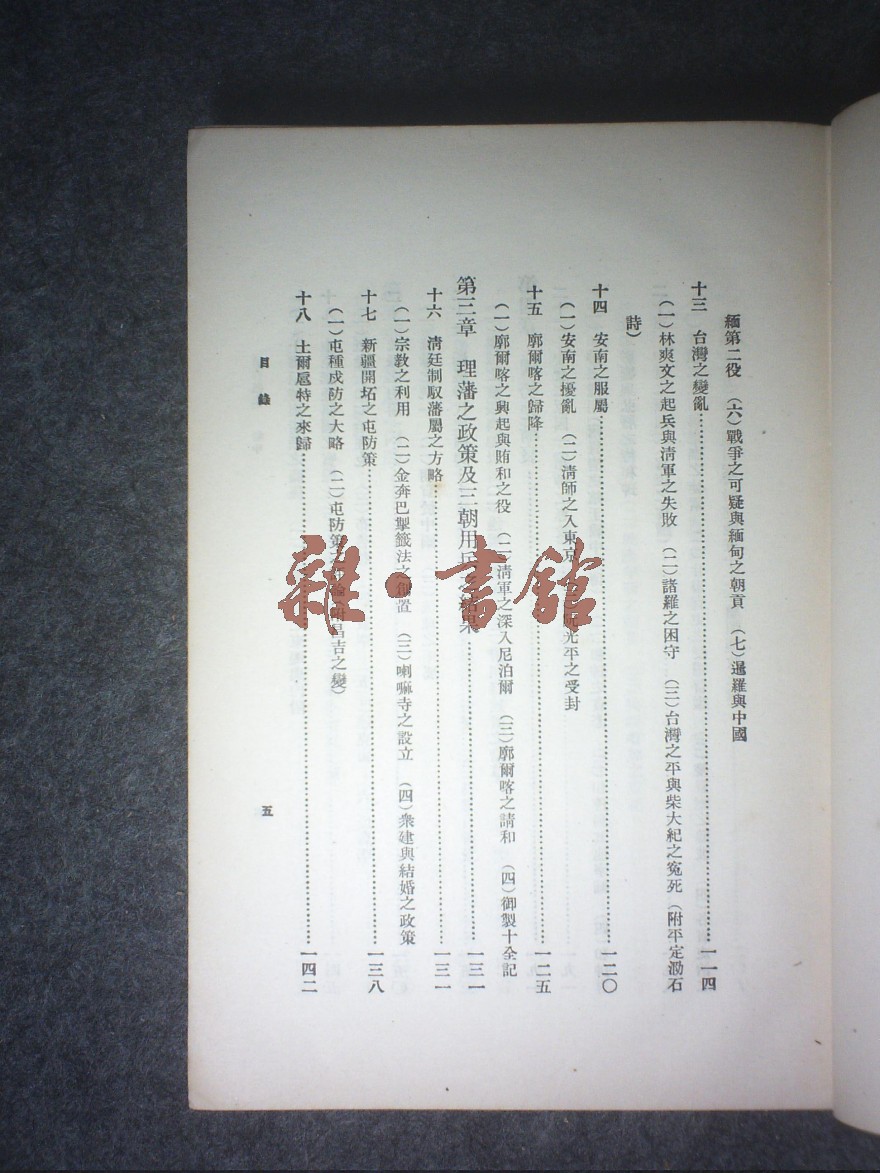 緬第二役　（六）戰爭之可疑與緬甸之朝貢　（七）暹羅與中國
十三　台灣之變亂…………一一四
（一）林爽文之起兵與淸軍之失敗　（二）諸羅之困守　（三）台灣之平與柴大紀之寃死（附平定泐石
詩）
十四　安南之服屬…………一二〇
（一）安南之擾亂　（二）淸師之入東京　光平之受封
十五　廓爾喀之歸降…………一二五
（一）廓爾喀之興起與賄和之役　（二）淸軍之深入尼泊爾　（三）廓爾喀之請和　（四）御製十全記
第三章　理藩之政策及三朝用兵之結果…………一三一
十六　淸廷制馭藩屬之方略…………一三一
（一）宗教之利用　（二）金奔巴掣籤法之創置　（三）喇嘛寺之設立　（四）衆建與結婚之政策
十七　新疆開拓之屯防策…………一三八
（一）屯種戍防之大略　（二）屯防策　昌吉之變）
十八　土爾扈特之來歸…………一四二
目錄
五
雜·書館